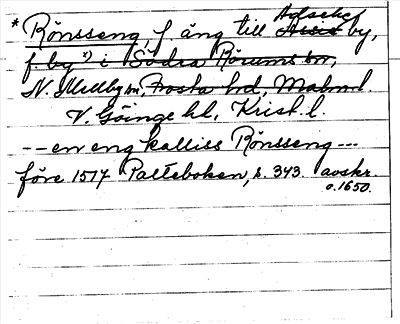 * Rönsseng, f. äng till by,
f. by *) i Södra Rörums sn,
N. Mellby sn, Frosta hd, Malm. l.
V. Göinge hd, Krist. l.
-- en eng kalliss Rönsseng ---
före 1517 Palteboken, s. 343. avskr.
o. 1650.